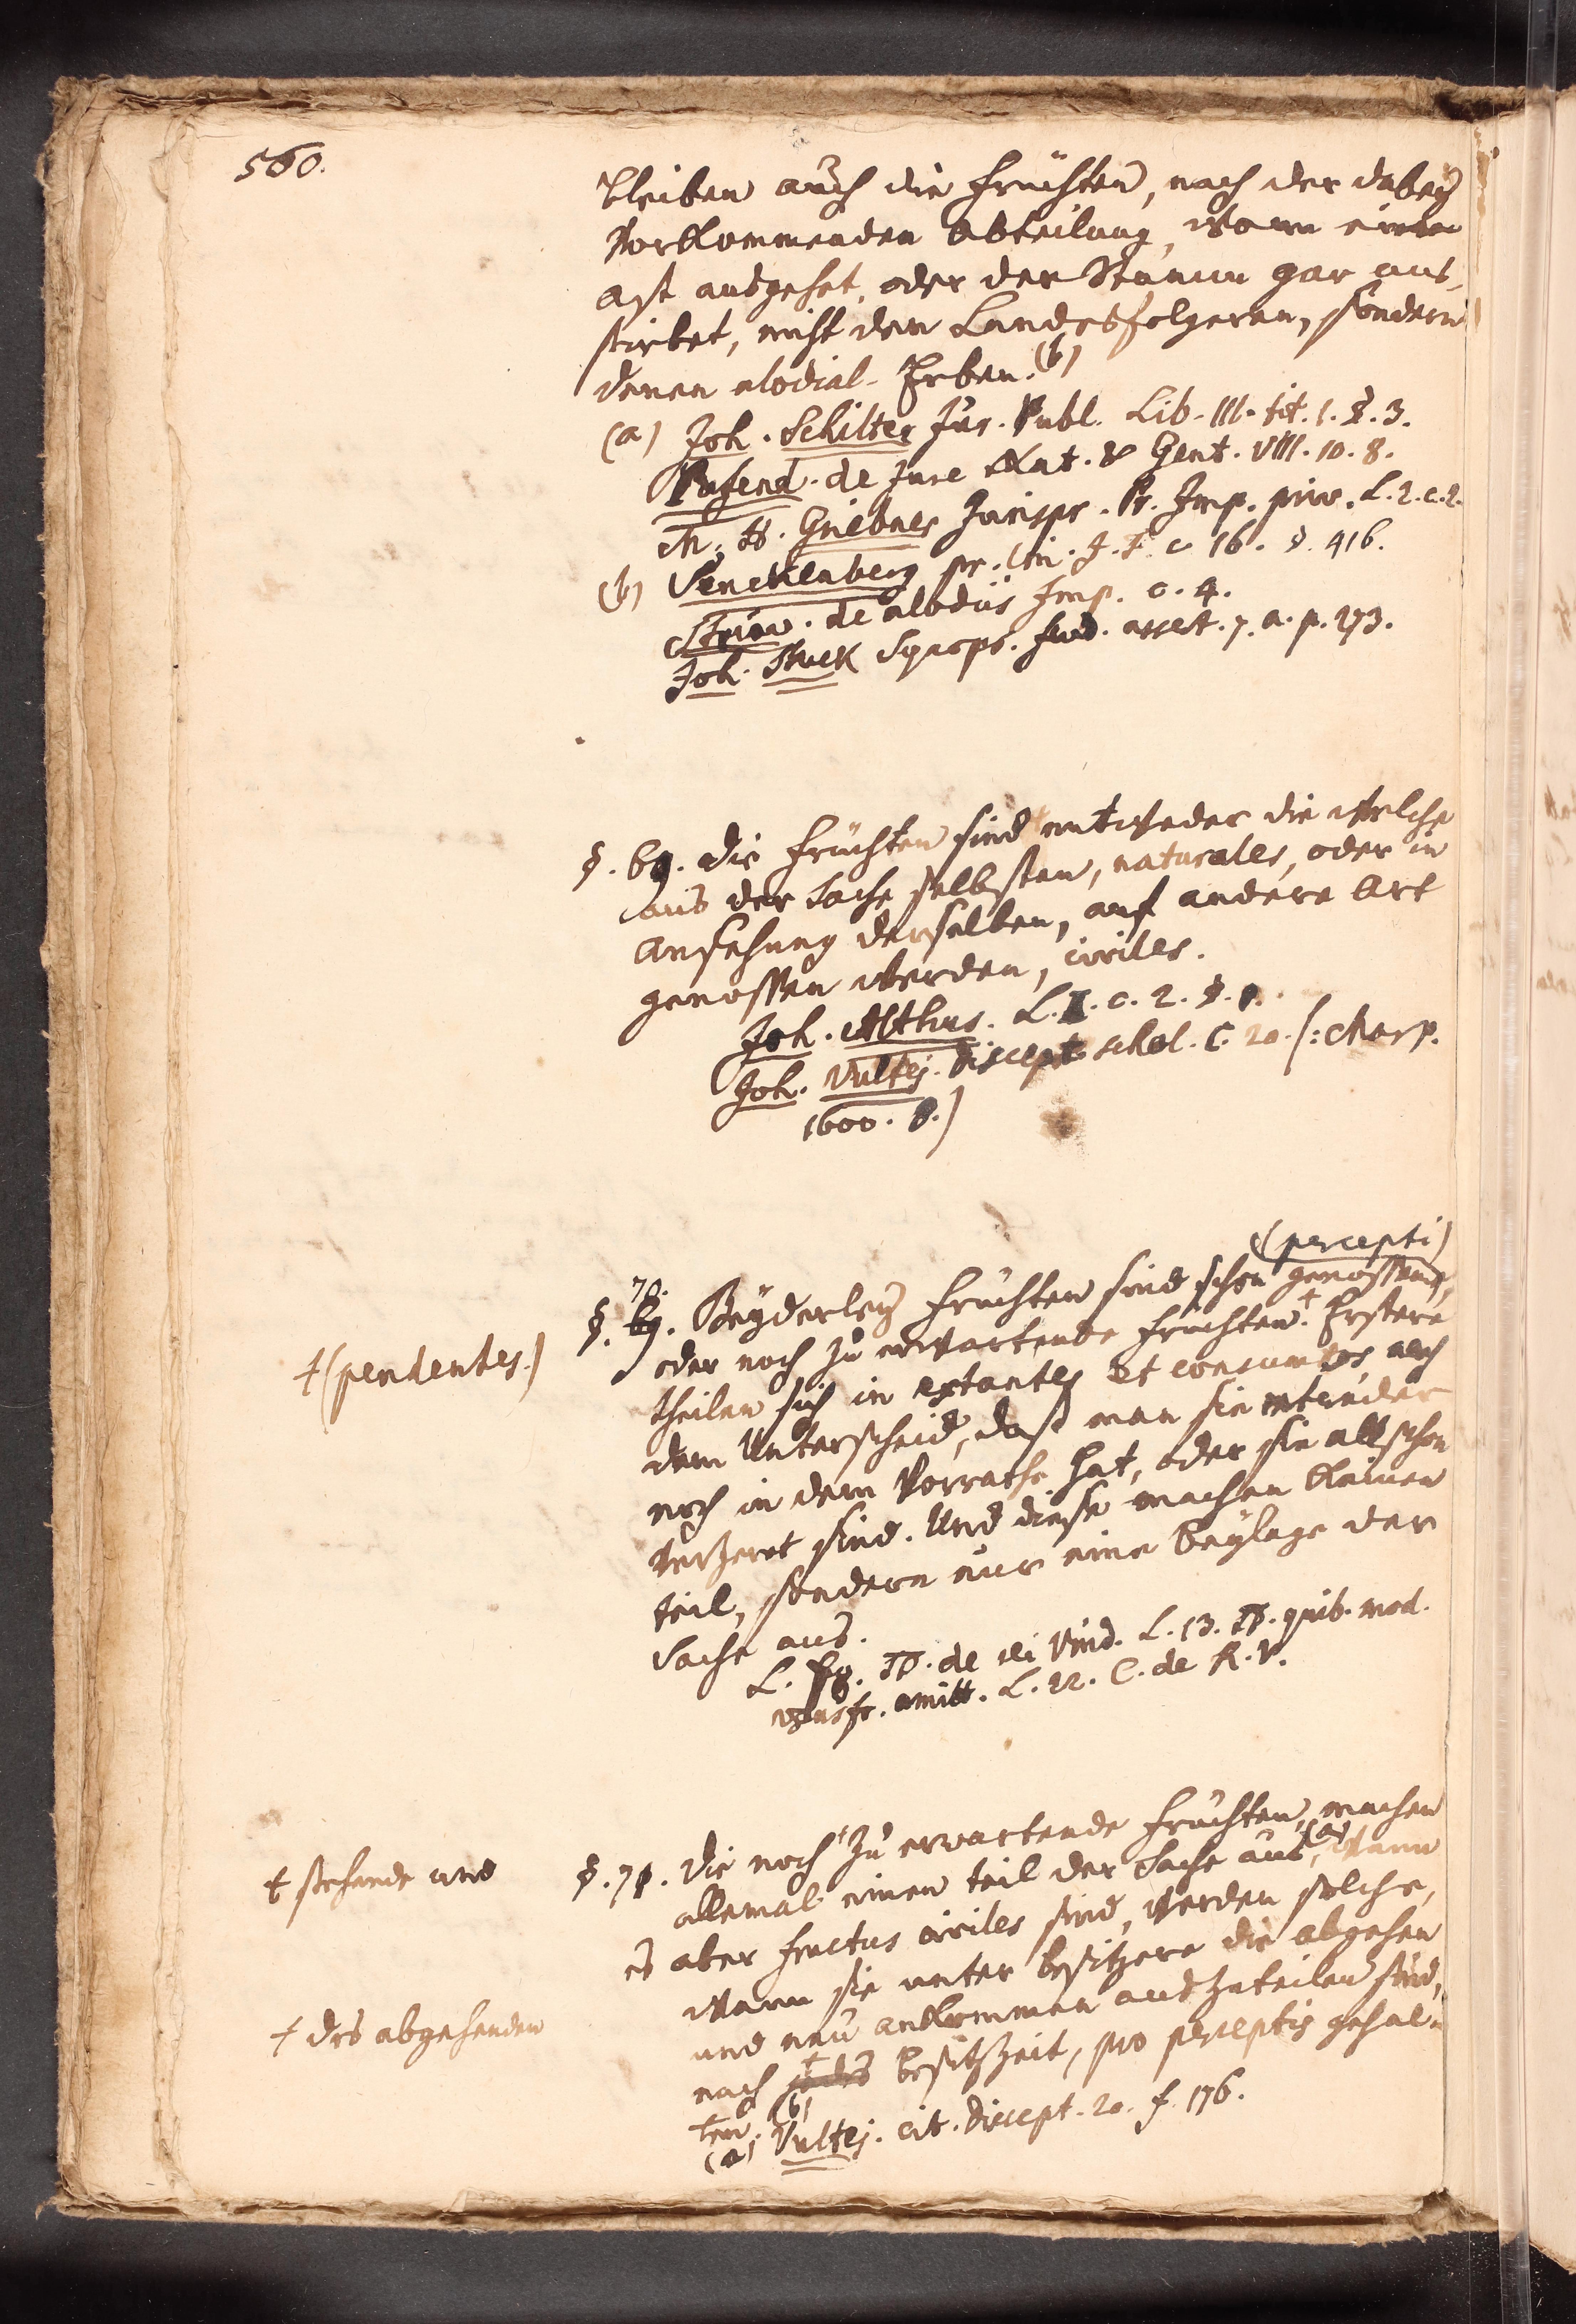 560.
bleiben auch die früchten, nach der dabey
vorkommenden abteilung, wann einen
ast ausgehet, oder der Stamm gar aus-
stirbet, nicht den Landesfolgeren, sondern
denen alodial-Erben. (b)
(a) Joh. Schilter Jur. Publ. Lib. III. tit. 1. §. 3.
Pufend. de Jure Nat. & Gent. VIII. 10. 8.
M. H. Griebner Jurispr. Pr. Imp. priv. L. 2. c. 2.
(b) Senckenberg pr. lin. J. F. c 16. §. 416.
Struv. de alodiis Imp. c. 4.
Joh. Stuck Synops. feud. assert. 7. a. p. 273.
§. 69. die früchten sind entweder die welche
aus der Sache selbsten, naturales, oder in
Ansehung derselben, auf andere Art
genossen werden, civiles.
Joh. Althus. L. I. c. 2. §.
Joh. Vultej. Discept. schol. C. 20. (: Marp.
1600. 8.)
(percepti)
§. 70. Beyderley früchten sind schon genossene,
oder noch zu erwartende früchten. † Erstere
† (pendentes.)
theilen sich in extantes et consumtos, nach
dem Unterscheid, daß man sie entweder
noch in dem Vorrathe hat, oder sie allschon
verzeret sind. Und diese machen keinen
teil, sondern nur eine beylage der
Sache aus.
L. TP. de rei Vind. L. 13. TP. quib. mod.
usufr. amitt. L. 22. C. de R. V.
§. 71. Die noch † zu erwartende früchten, machen
† stehende und
allemal einen teil der Sache aus, (a) wann
es aber fructus civiles sind, werden solche,
wann sie unter besitzere die abgehen
und neu ankommen auszuteilen sind,
† des abgehenden
nach † besitzzeit, pro perceptis gehal-
ten. (b)
(a) Vultej. cit. Discept. 20. f. 176.